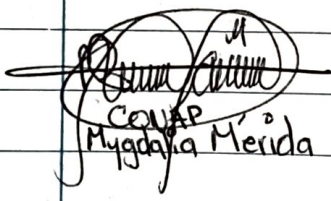 M
COUAP
Mygdalia Mérida